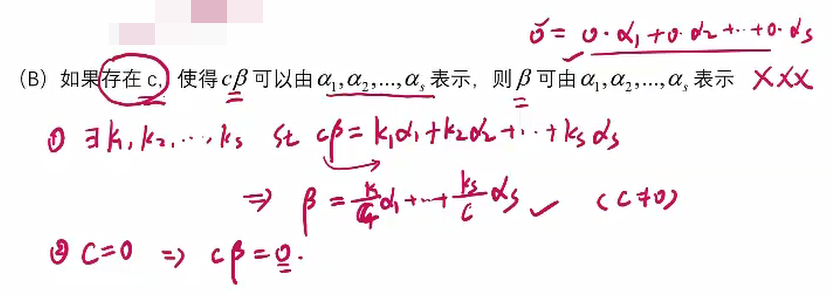 0⃗ = 0·α₁+0·α₂+···+0·αs
（B）如果存在 c，使得cβ可以由α₁,α₂,...,αₛ表示，则β可由α₁,α₂,...,αₛ表示 ×××
① ∃k₁,k₂,···,ks st cβ=k₁α₁+k₂α₂+···+ksαs
⇒ β=k₁/c α₁+···+ks/c αs ✓ (c≠0)
② C=0 ⇒ cβ=0.